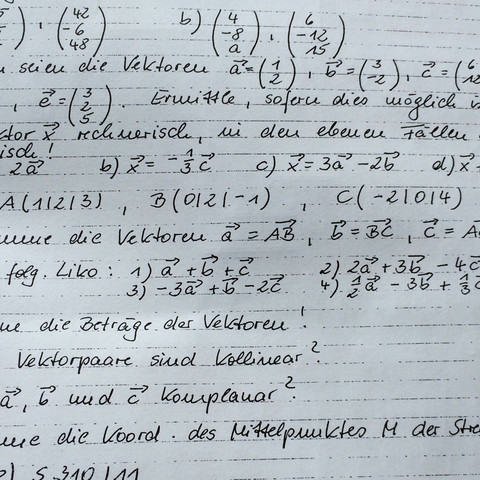 , (42 -6 48) b) (4 -8 a) , (6 -12 15)
seien die Vektoren a⃗=(1 2) , b⃗=(3 -2) , c⃗=(6
, e⃗=(3 2 5) . Ermittle, sofern dies möglich
x⃗ rechnerisch, in den ebenen Fällen
!
2a⃗ b) x⃗= -1/3 c⃗ c) x⃗=3a⃗ -2b⃗ d) x⃗
A(1|2|3) , B(0|2|-1) , C(-2|0|4)
die Vektoren a⃗ = AB⃗ , b⃗=BC⃗ , c⃗ = A
folg. Liko: 1) a⃗ + b⃗ + c⃗ 2) 2a⃗ +3b⃗ -4c⃗
3) -3a⃗ +b⃗ -2c⃗ 4) 1/2 a⃗ -3b⃗ + 1/3 c⃗
die Beträge der Vektoren!
Vektorpaare sind kollinear?
a⃗, b⃗ und c⃗ komplanar?
die Koord. des Mittelpunktes M der
S.310/11